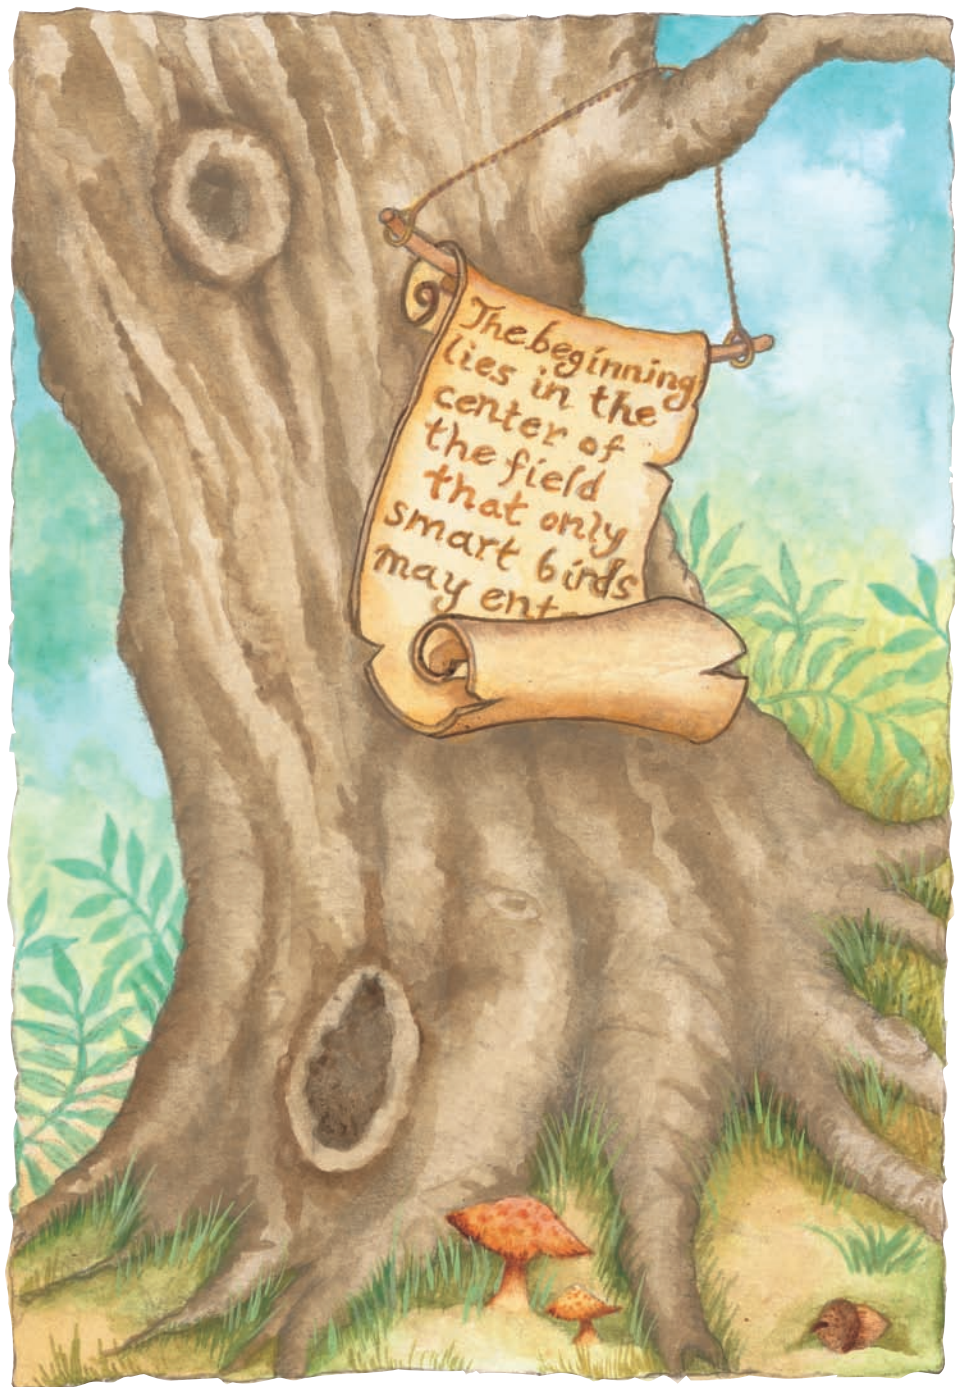 The beginning
lies in the
center of
the field
that only
smart birds
may ent